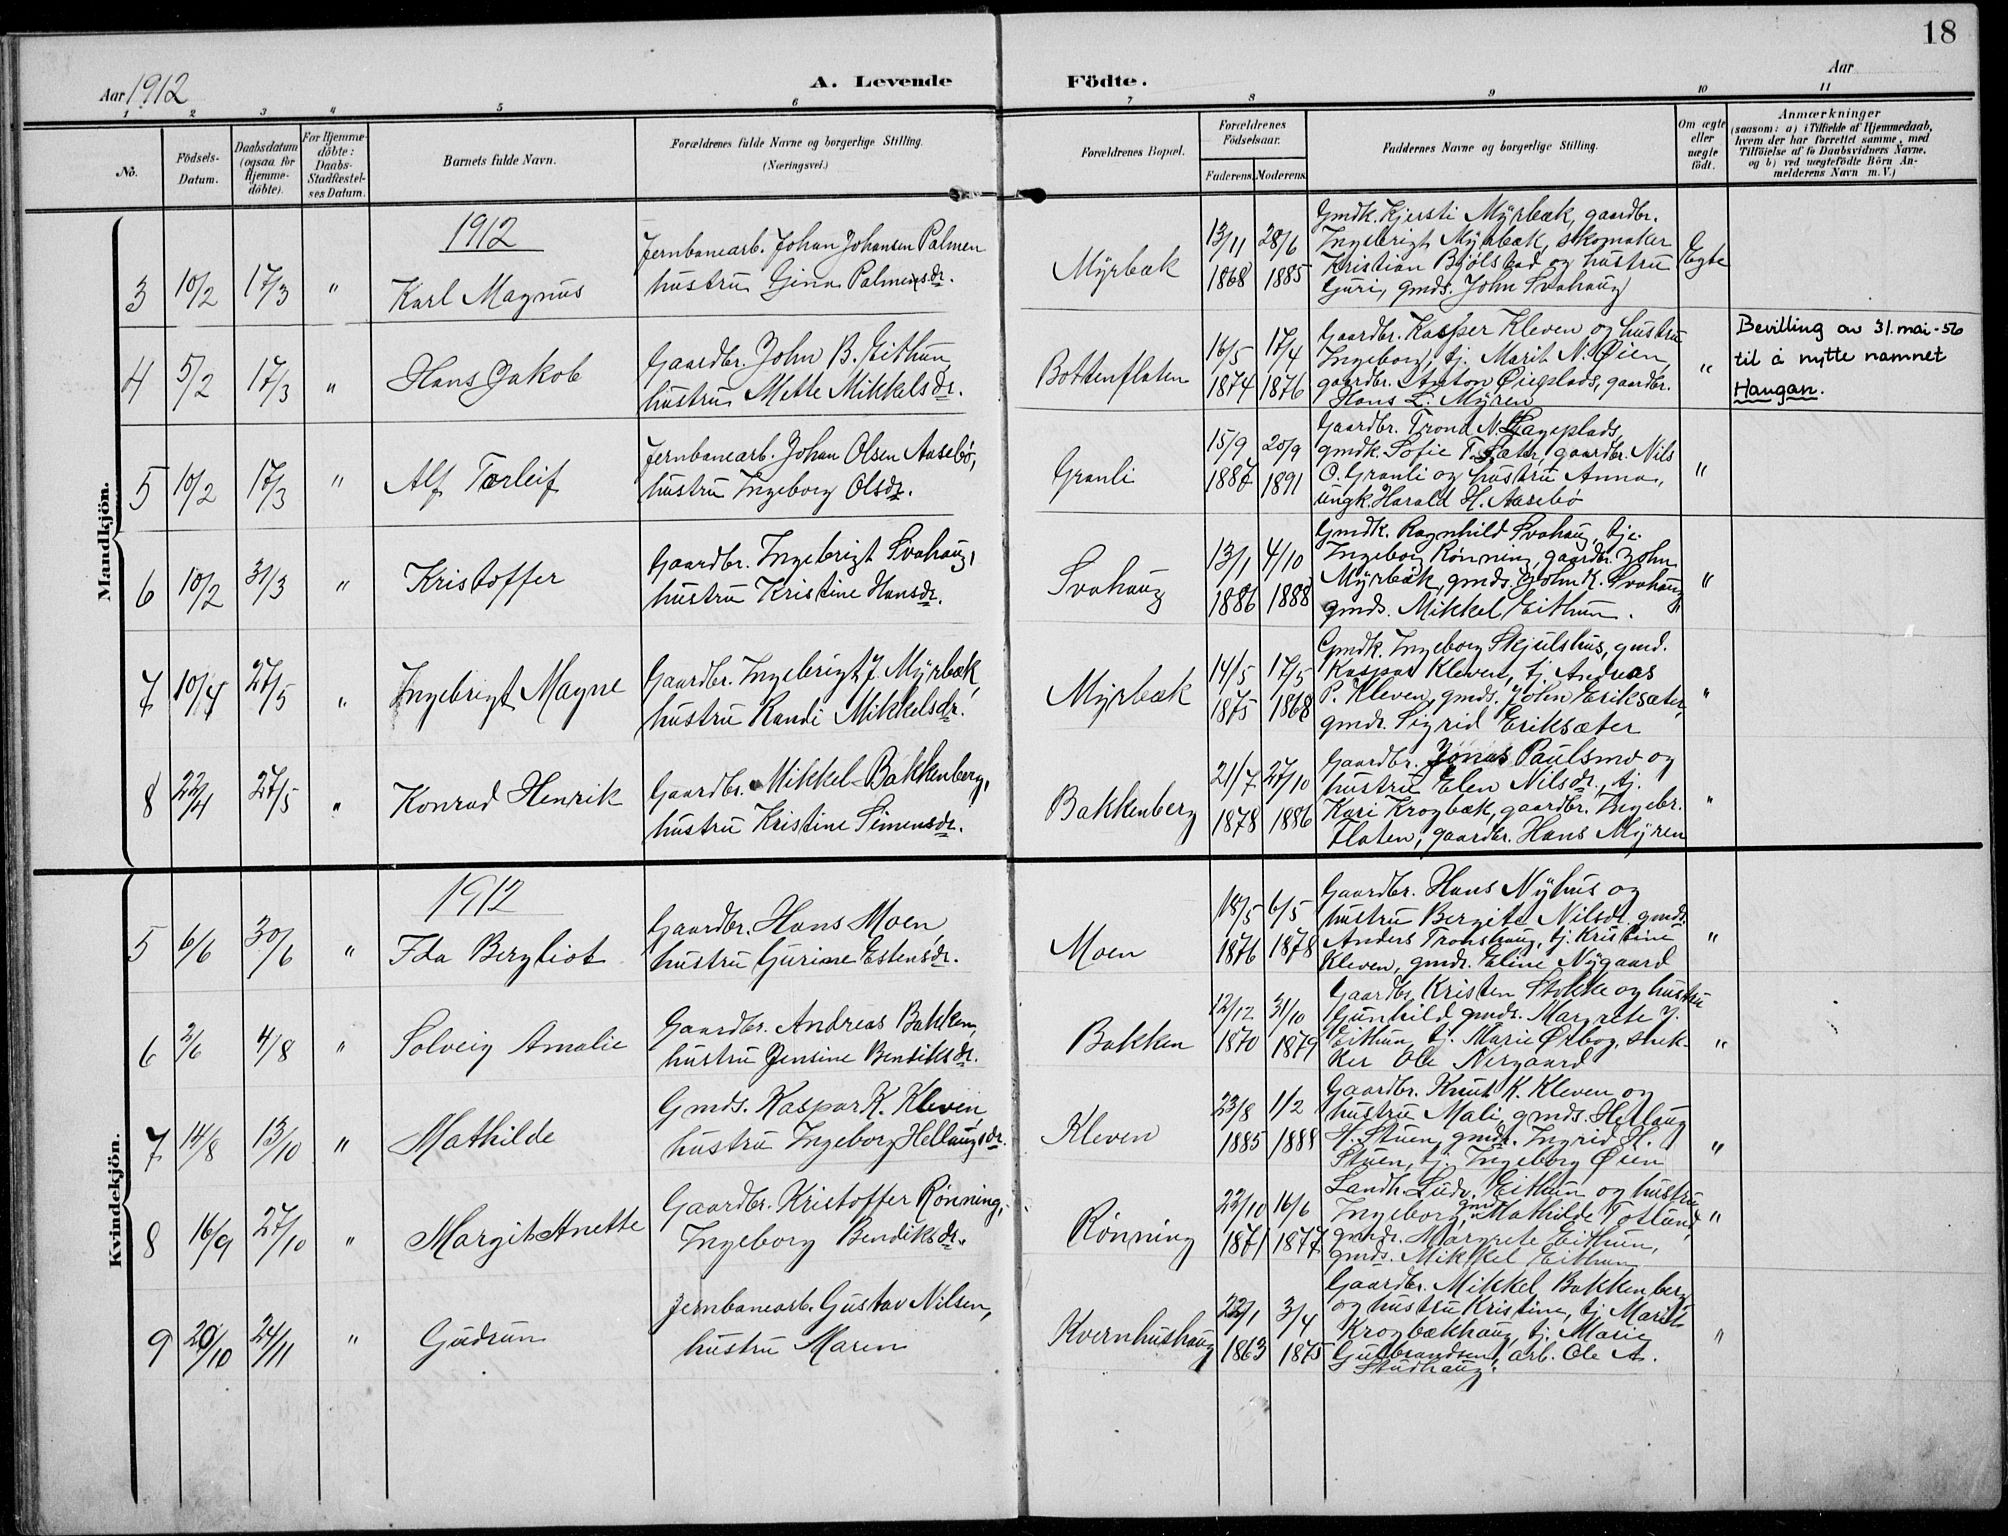 18
Aar 1912
A. Levende Födte.
Aar
1 2 3 4 5 6 7 8 9 10 11
No.
Födsels-Datum.
Daabsdatum (ogsaa for Hjemme-döbte).
For Hjemme-döbte: Daabs-Stadfæstel-ses Datum.
Barnets fulde Navn.
Forældrenes fulde Navne og borgerlige Stilling.
(Næringsvei.)
Forældrenes Bopæl.
Forældrenes Födselsaar.
Faderens. Moderens.
Faddernes Navne og borgerlige Stilling.
Om ægte eller uægte födt.
Anmærkninger
(saasom: a) i Tilfælde af Hjemmedaab,
hvem der har forrettet samme, med
Tilföielse af to Daabsvidners Navne,
og b) ved uægtefödte Börn An-
melderens Navn m. V.)
Mandkjön.
1912
3 10/2 17/3 " Karl Magnus
Jernbanearb. Johan Johansen Palmen
hustru Gina Palmensdr.
Myrbæk
13/11 28/6
1868 1885
Gmdk. Kjersti Myrbæk, gaardbr.
Ingebrigt Myrbæk, skomaker
Kristian Bjölstad og hustru
Guri, gmds. John Svahaug
Egte
4 5/2 17/3 " Hans Jakob
Gaardbr. John B. Eithun,
hustru Mette Mikkelsdr.
Bottenflaten
16/5 17/4
1874 1876
Gaardbr. Kasper Kleven og hustru
Ingeborg, tj. Marit N. Øien,
gaardbr. Anton Øieplads, gaardbr.
Hans L. Myren
"
Bevilling av 31. mai - 56
til å nytte namnet
Haugan.
5 10/2 17/3 " Alf Torleif
Jernbanearb. Johan Olsen Aasebö,
hustru Ingeborg Olsdr.
Granli
15/9 20/9
1887 1891
Gaardbr. Trond N. Hageplads,
gmdk. Sofie T. Sæter, gaardbr. Nils
O. Granli og hustru Anna,
ungk. Harald H. Aasebö
"
6 10/2 31/3 " Kristoffer
Gaardbr. Ingebrigt Svahaug,
hustru Kristine Hansdr.
Svahaug
13/1 4/10
1886 1888
Gmdk. Ragnhild Svahaug, tje.
Ingeborg Rønning, gaardbr. John
Myrbæk, gmds. John K. Svahaug,
gmds. Mikkel Eithun.
"
7 10/4 27/5 " Ingebrigt Magne
Gaardbr. Ingebrigt J. Myrbæk,
hustru Randi Mikkelsdr.
Myrbæk
14/5 17/5
1875 1868
Gmdk. Ingeborg Skjulshus, gmd.
Kaspar Kleven, tj. Andreas
P. Kleven, gmds. John Eriksæter,
gmdr. Sigrid Eriksæter
"
8 22/4 27/5 " Konrad Henrik
Gaardbr. Mikkel Bakkenberg,
hustru Kristine Simensdr.
Bakkenberg
21/7 27/10
1878 1886
Gaardbr. Jonas Paulsmo og
hustru Elen Nilsdr., tj.
Kari Krogbæk, gaardbr. Ingebr.
Flaten, gaardbr. Hans Myren
"
Kvindekjön.
1912
5 6/6 30/6 " Ida Bergliot
Gaardbr. Hans Moen,
hustru Gurine Estensdr.
Moen
18/5 6/5
1876 1878
Gaardbr. Hans Nyhus og
hustru Bergite Nilsdr. gmds.
Anders Tronshaug, tj. Kristine
Kleven, gmdr. Eline Nygaard
"
6 2/6 4/8 " Solveig Amalie
Gaardbr. Andreas Bakken,
hustru Jensine Bendiksdr.
Bakken
12/12 31/10
1870 1879
Gaardbr. Kristen Stokke og hustru
Gunhild gmds. Margrete J.
Eithun, tj. Marie Ørbog, snek-
ker Ole Nergaard
"
7 14/8 13/10 " Mathilde
Gmds. Kaspar K. Kleven,
hustru Ingeborg Hellaugsdr.
Kleven
23/8 1/2
1885 1888
Gaardbr. Knut K. Kleven og
hustru Mali, gmds. Hellaug
H. Stuen, gmdr. Ingrid H.
Stuen, tj. Ingeborg Øien
"
8 16/9 27/10 " Margit Anette
Gaardbr. Kristoffer Rønning,
Ingeborg Bendiksdr.
Rønning
22/10 16/6
1871 1877
Landh. Ludv. Eithun og hustru
Ingeborg, gmd. Mathilde Totland,
gmdr. Margrete Eithun,
gmds. Mikkel Eithun
"
9 20/10 24/11 " Gudrun
Jernbanearb. Gustav Nilsen,
hustru Maren
Kvernhushaug
22/1 3/4
1863 1875
Gaardbr. Mikkel Bakkenberg
og hustru Kristine, tj. Marit
Krogbækhaug, tj. Marie
Gulbrandsen, arb. Ole A.
Studhaug.
"